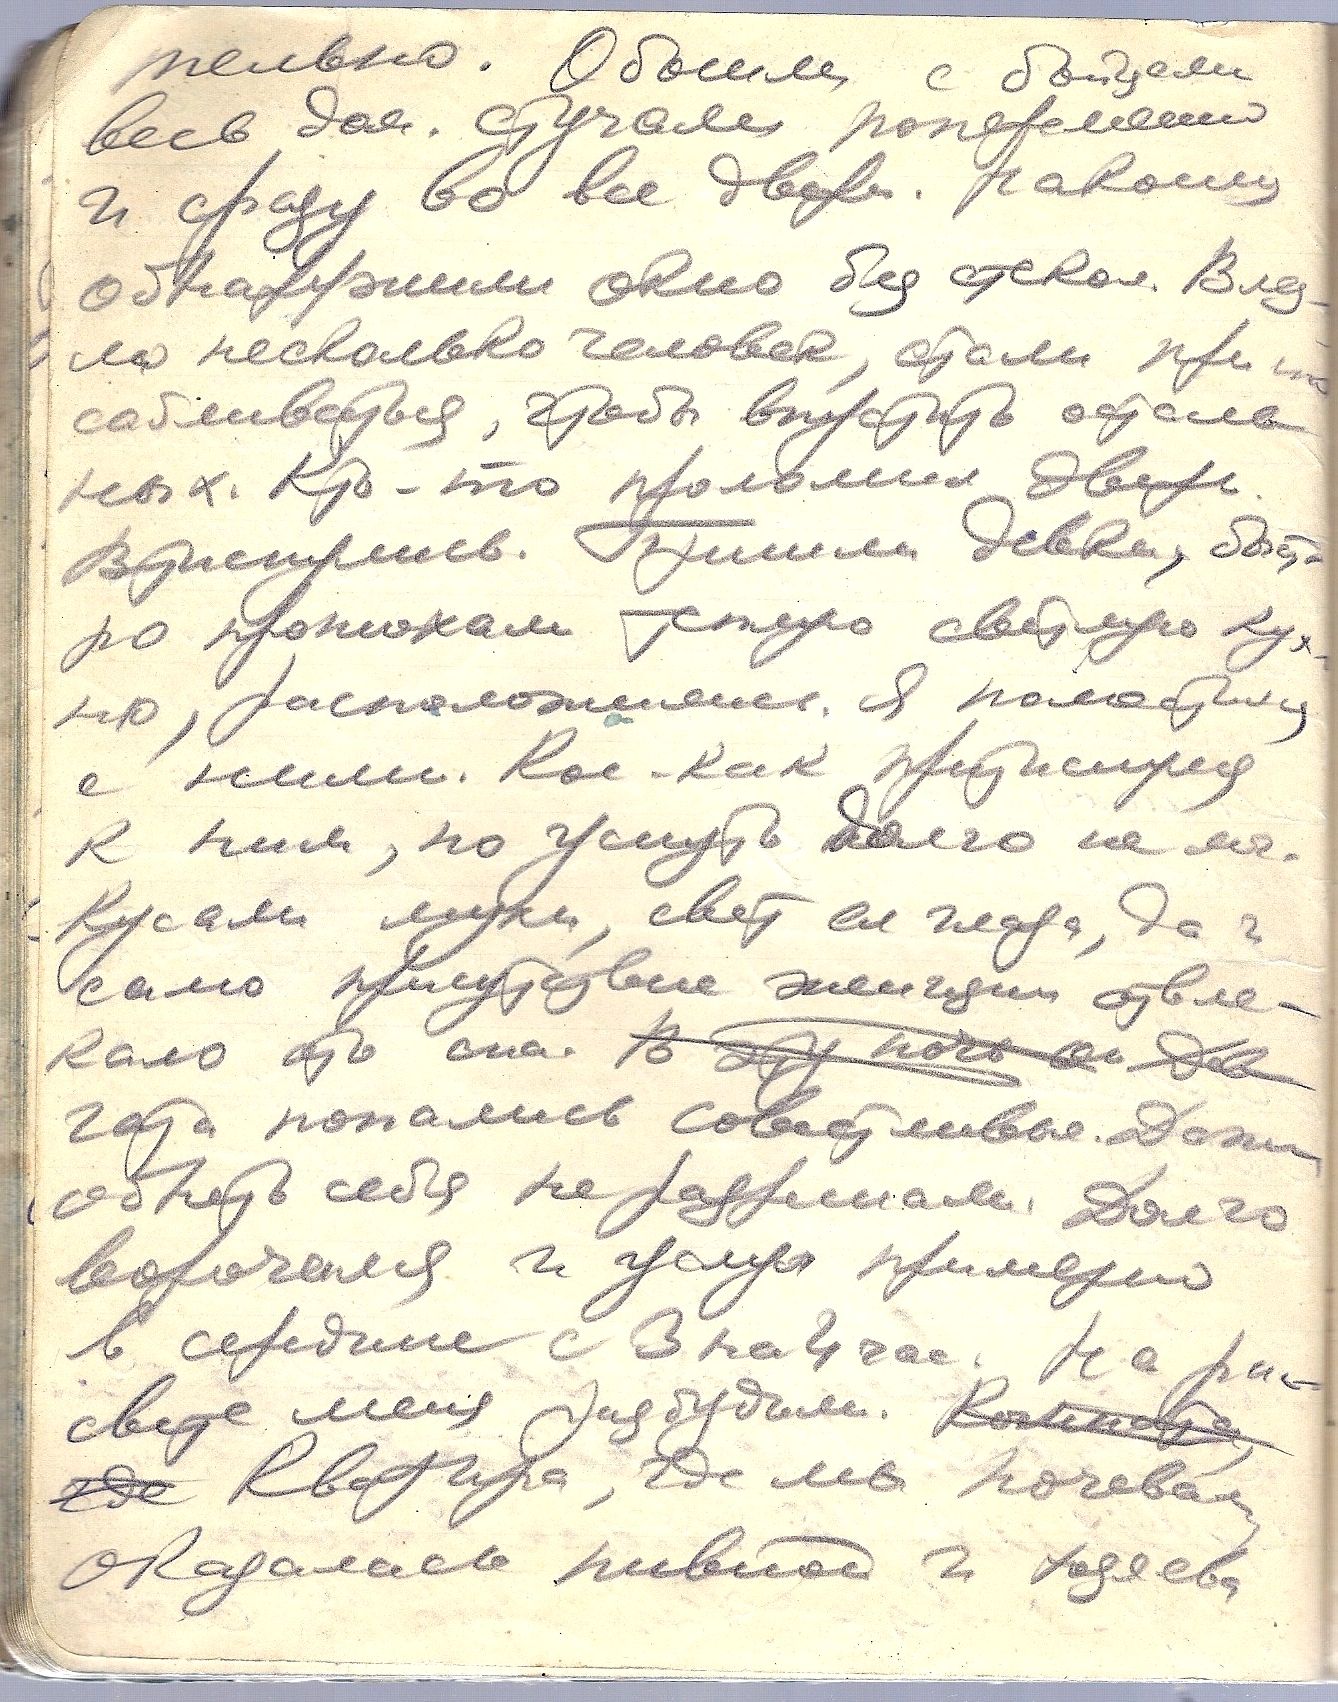 тельно. Обошли с бойцами
весь дом. Стучали попеременно
и сразу во все двери. Наконец
обнаружили окно без стекол. Влез-
ло несколько человек, стали при
сабливаться, чтобы впустить осталь
ных. Кто-то проломил дверь.
Втиснулись. Пришли девки, быст
ро пронюхали теплую светлую кух-
ню, расположились. Я поместился
с ними. Кое-как притиснулся
к ним, но уснуть долго не мог.
Кусали мухи, свет ел глаза, да и
само присутствие женщин отвле-
кало от сна. В эту ночь Дев
чата попались совестливые. Даже
обнять себя не разрешали. Долго
ворочался и уснул примерно
в середине с 3 на 4 час. На рас-
свете меня разбудили. Комната,
где Квартира, где мы ночевали
оказалась пивной и хозяева